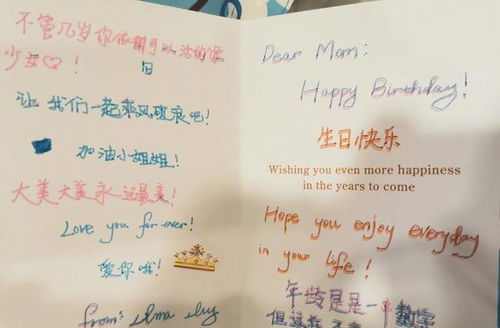 不管几岁你依旧可以活的像
少女♡!
让我们一起乘风破浪吧!
加油小姐姐!
大美大美永远最美!
Love you for ever!
爱你哦!
from:
Dear Mom:
Happy Birthday!
生日快乐
Wishing you even more happiness
in the years to come
Hope you enjoy everyday
in your life!
年龄是是一串数字
但这